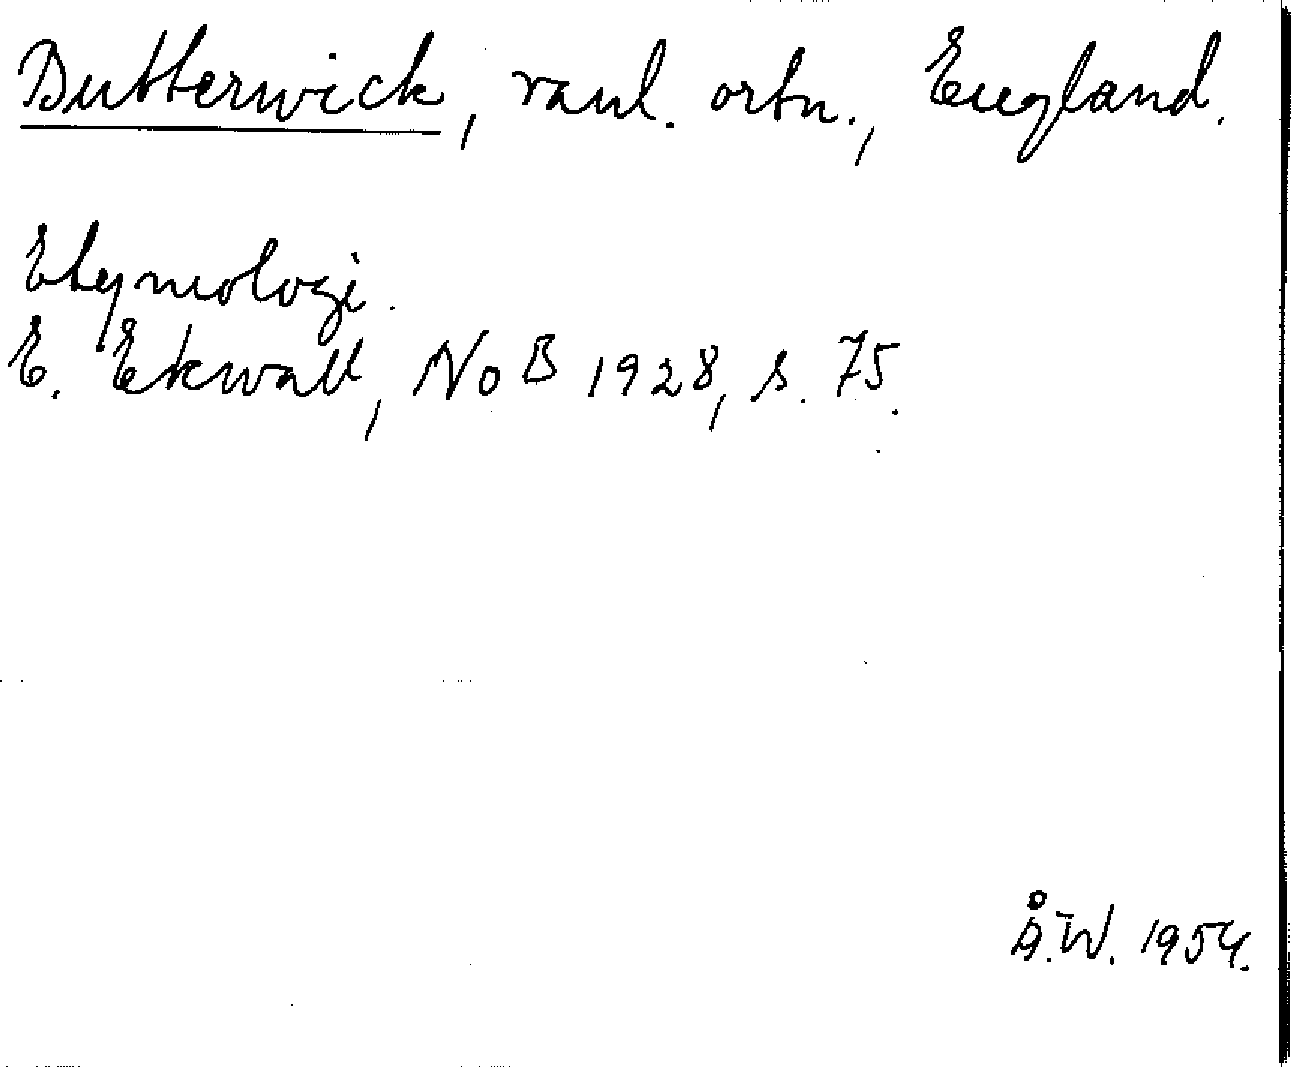 Butterwick, vanl. ortn., England.
Etymologi.
E. Ekwall, NoB 1928, s. 75.
Å.W. 1954.